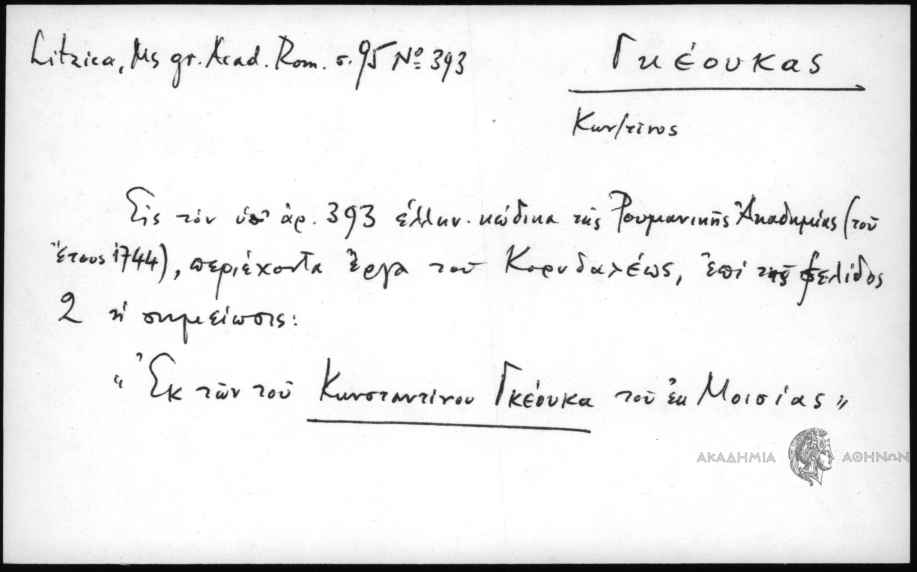 Litzica, Ms gr. Acad. Rom. σ. 95 Nº 393
Γκέουκας
Κων/τῖνος
Εἰς τὸν ὑπ' ἀρ. 393 ἑλλην. κώδικα τῆς Ρουμανικῆς Ἀκαδημίας (τοῦ
ἔτους 1744), περιέχοντα ἔργα τοῦ Κορυδαλέως, ἐπὶ τῆς σελίδος
2 ἡ σημείωσις:
"Ἐκ τῶν τοῦ Κωνσταντίνου Γκέουκα τοῦ ἐκ Μοισίας"
ΑΚΑΔΗΜΙΑ ΑΘΗΝΩΝ